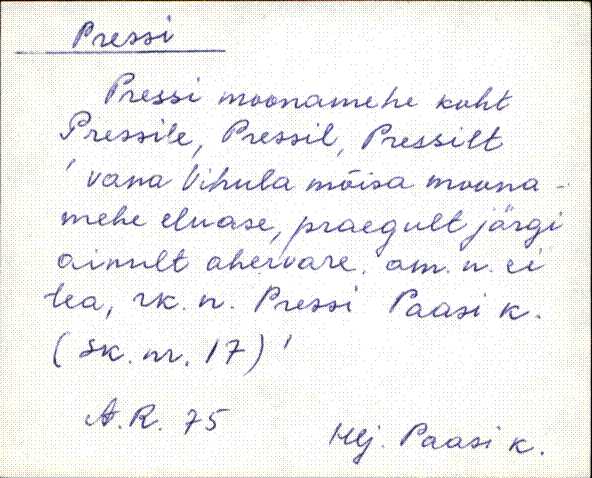 Pressi
Pressi moonamehe koht
Pressile, Pressil, Pressilt
'vana Vihula mõisa moona-
mehe eluase, praegult järgi
ainult ahervare. am. n. ei
tea, rk. n. Pressi Paasi k.
(sk. nr. 17)'
A.R. 75
Hlj. Paasi k.